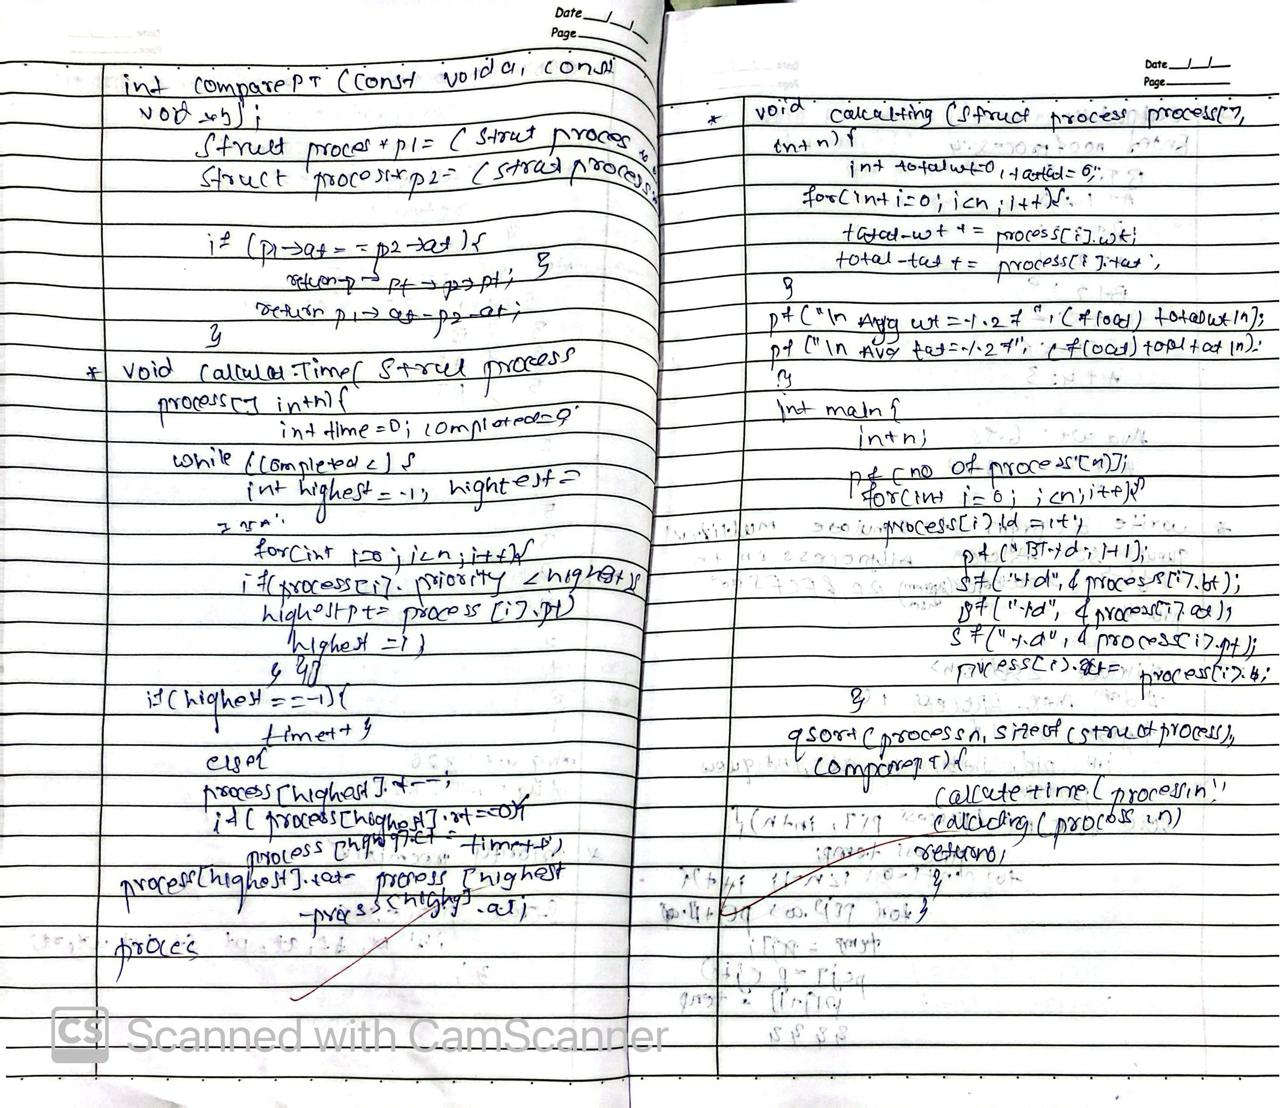 Date
Page
int comparePT (const void a, const
void *b);
struct proces * p1 = (strut proces
struct process * p2 = (strut process
if (p1->at == p2->at){
return p -> pt -> p->pt; }
return p1-> at - p2 - at;
}
* void calculat:Time( struct process
process[] int n){
int time =0; completed=0;
while (completed <) {
int highest = -1, hightest =
for(int i=0; i<n; i++){
if(process[i]. priority < highest){
highestpt = process [i].pt)
highest = i;
} }}
if (highest == -1){
time++ }
else{
process[highest].r--;
if( process[highest].rt ==0){
process [highg].ct = time++;
process[highest].tat= process [highest
-process[highg].at;
proces
Date
Page
* void calculting (struct process process[],
int n) {
int totalwt=0, tattal = 0;
for(int i=0; i<n; i++){
total-wt += process[i].wt;
total-tat += process[i].tat;
}
pf("\n Avg wt =%.2f", (float) totalwt/n);
pf("\n Avg tat=%.2f", (float) total tat/n);
}
int main{
int n;
pf (no of process"[n)];
for(int i=0; i<n; i++){
process[i].id = i+;
pf (" BT %d, i+1];
sf ("%d", & process[i].bt);
sf ("%d", & process[i].at);
sf ("%d", & process[i].pt);
process[i].rt= process[i].b;
}
qsort (process n, sizeof (struct process),
comparept){
calcute time( process,n'
calculting (process ,n)
return 0;
}
}
CS Scanned with CamScanner